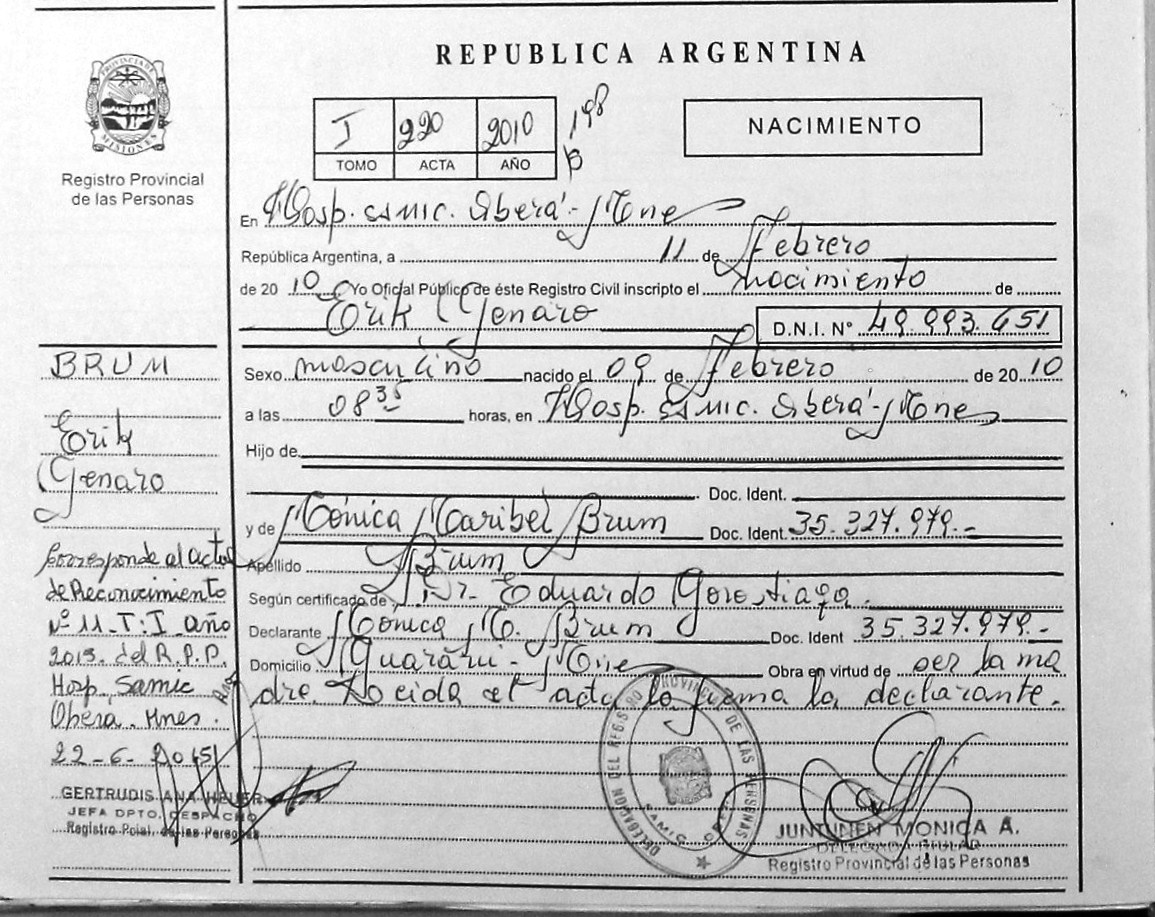 REPUBLICA ARGENTINA
PROVINCIA DE MISIONES
Registro Provincial
de las Personas
I 220 2010 198
TOMO ACTA AÑO
NACIMIENTO
En Hosp. Samic. Oberá - Mnes
República Argentina, a 11 de Febrero
de 2010 Yo Oficial Público de éste Registro Civil inscripto el nacimiento de
Erik Genaro D.N.I. Nº 49.993.651
Sexo masculino nacido el 09 de Febrero de 2010
a las 08 35 horas, en Hosp. Samic. Oberá - Mnes
Hijo de
Doc. Ident.
y de Mónica Maribel Brum Doc. Ident 35.327.979.-
Apellido Brum
Según certificado de Dr. Eduardo Gorostiaga.
Declarante Mónica M. Brum Doc. Ident 35.327.979.-
Domicilio Guaraní - Mnes Obra en virtud de ser la ma
dre. Leída el acta la firma la declarante.
BRUM
Erik
Genaro
Corresponde al acta
de Reconocimiento
Nº 11-T: I año
del R.P.P.
Hosp. Samic
Oberá. Mnes.
22-6-2015
GERTRUDIS ANA HEUER
JEFA DPTO. DESPACHO
Registro Pcial. de las Personas
DELEGACION DEL REGISTRO PROVINCIAL DE LAS PERSONAS
SAMIC OBERA
JUNTUNEN MONICA A.
DELEGADA TITULAR
Registro Provincial de las Personas